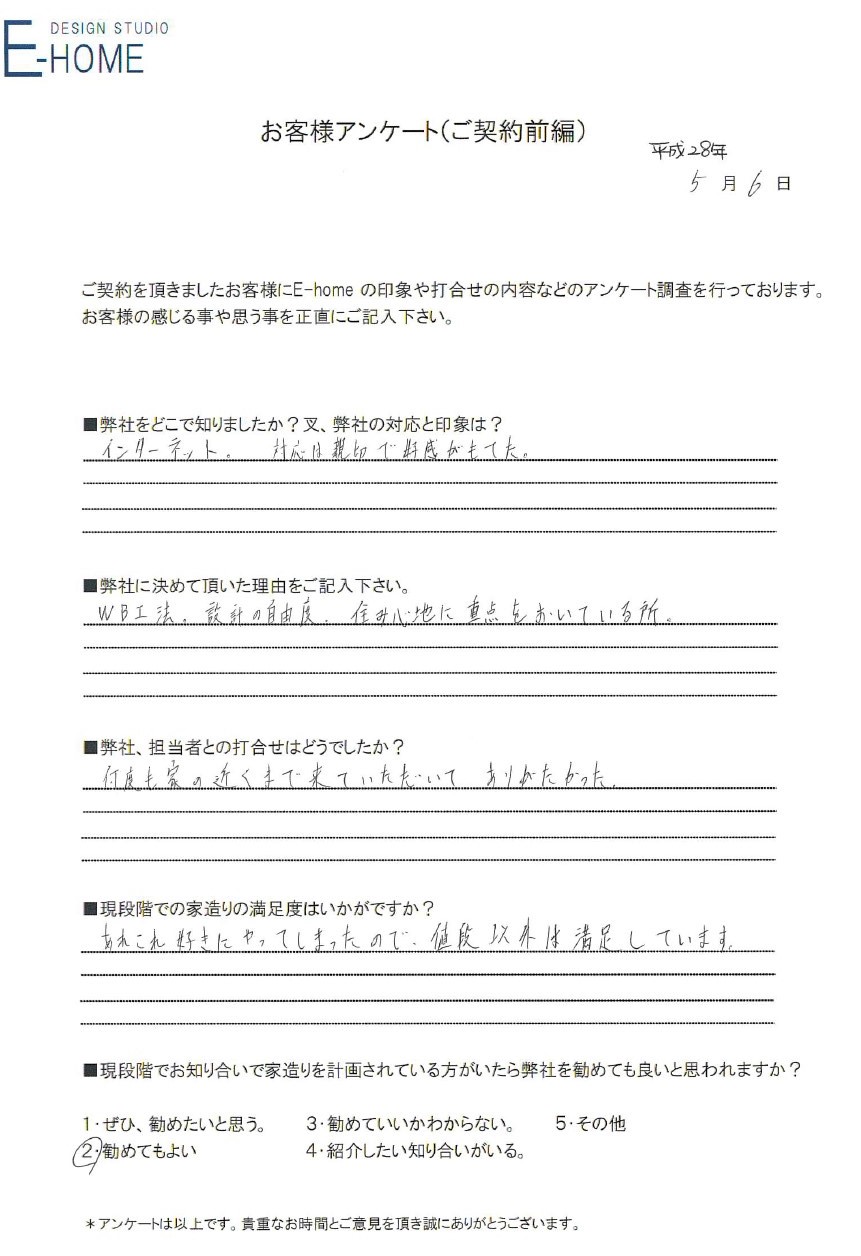 DESIGN STUDIO
E-HOME
お客様アンケート(ご契約前編)
平成28年
5月6日
ご契約を頂きましたお客様にE-home の印象や打合せの内容などのアンケート調査を行っております。
お客様の感じる事や思う事を正直にご記入下さい。
■弊社をどこで知りましたか？又、弊社の対応と印象は？
インターネット。 対応は親切で好感がもてた。
■弊社に決めて頂いた理由をご記入下さい。
WB工法。設計の自由度。住み心地に重点をおいている所。
■弊社、担当者との打合せはどうでしたか？
何度も家の近くまで来ていただいて ありがたかった。
■現段階での家造りの満足度はいかがですか？
あれこれ好きにやってしまったので、値段以外は満足しています。
■現段階でお知り合いで家造りを計画されている方がいたら弊社を勧めても良いと思われますか？
1・ぜひ、勧めたいと思う。 3・勧めていいかわからない。 5・その他
2・勧めてもよい 4・紹介したい知り合いがいる。
＊アンケートは以上です。貴重なお時間とご意見を頂き誠にありがとうございます。